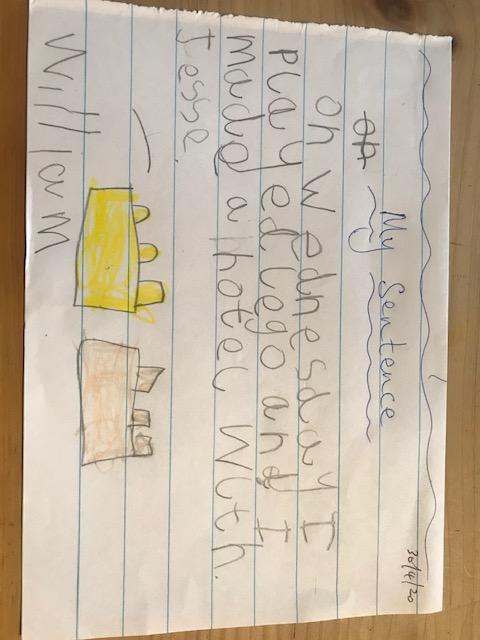 30/4/20
My sentence
On
On Wednesday I
played lego and I
made a hotel with.
Jesse.
William